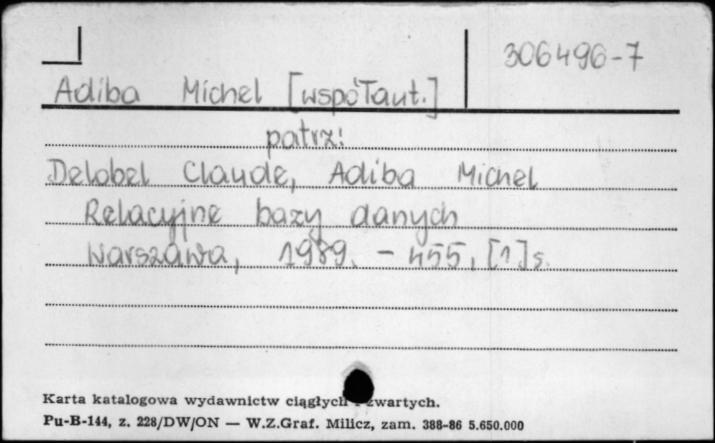 306496-7
Adiba Michel [współaut.]
patrz:
Delobel Claude, Adiba Michel
Relacyjne bazy danych
Warszawa, 1989. - 455, [1] s.
Karta katalogowa wydawnictw ciągłych zwartych.
Pu-B-144, z. 228/DW/ON — W.Z.Graf. Milicz, zam. 388-86 5.650.000